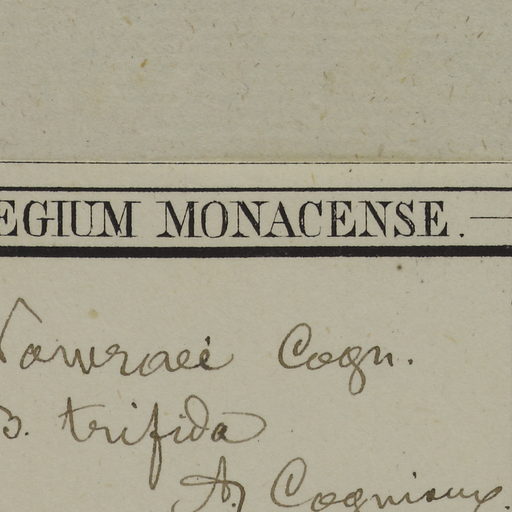 EGIUM MONACENSE.
Towraei Cogn.
B. trifida
A. Cogniaux.